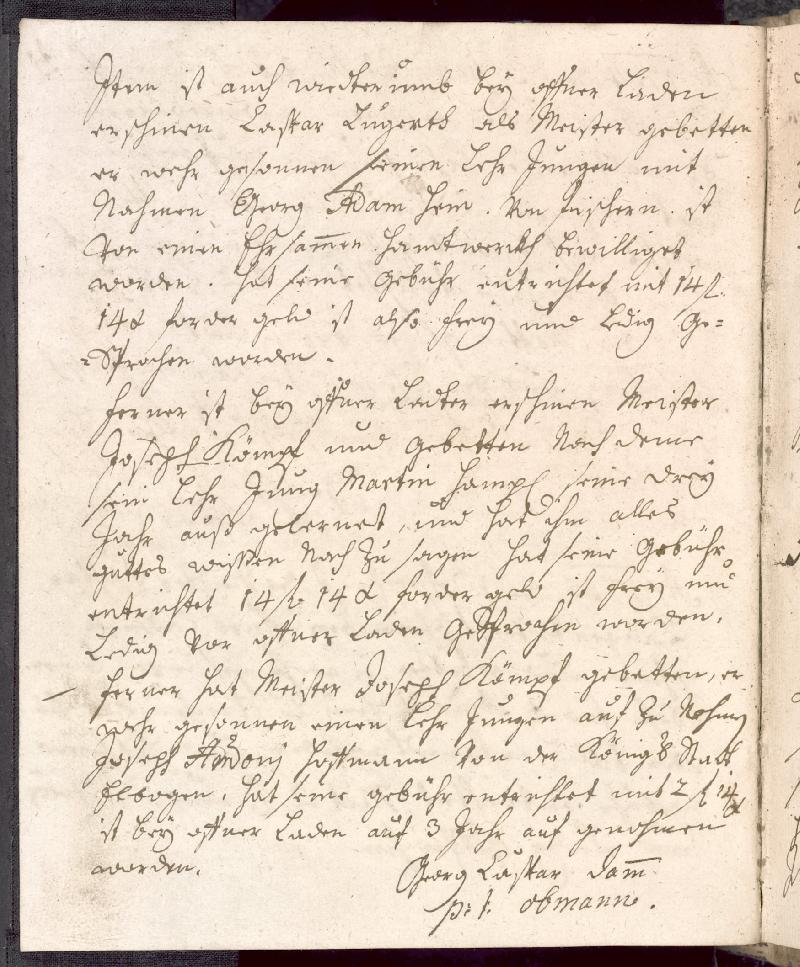 Item ist auch wiedter umb beÿ offner Laden
erschinen Caspar Lugerth als Meister gebetten
er wehr gesonnen seinen Lehr Jungen mit
Nahmen Georg Adam Hein. Von Fischern. ist
Von einen Ehrsammen Handtwerckh bewilliget
worden. hat seine Gebühr entrichtet mit 14 fl.
14 x forder geld ist also freÿ und Ledig Ge=
=Sprochen worden.
ferner ist beÿ offner Ladter erschinen Meister
Joseph Kömpf und Gebetten Nach deme
sein Lehr Jung Martin Hampl seine dreÿ
Jahr auß gelernet, und hat ihm alles
guttes wissen Nach Zu sagen hat seine Gebühr
entrichtet 14 fl 14 x forder geld ist freÿ und
Ledig Vor offner Laden GeSprochen worden.
ferner hat Meister Joseph Kömpf gebetten, er
wehr gesonnen einen Lehr Jungen auf Zu Nehmen
Joseph Andonj Hoffmann Von der Königs Stadt
Elbogen. hat seine gebühr entrichtet mit 2 fl 14 x
ist beÿ offner Laden auf 3 Jahr auf genohmen
worden.
Georg Caspar Damm
p: t. obmann.